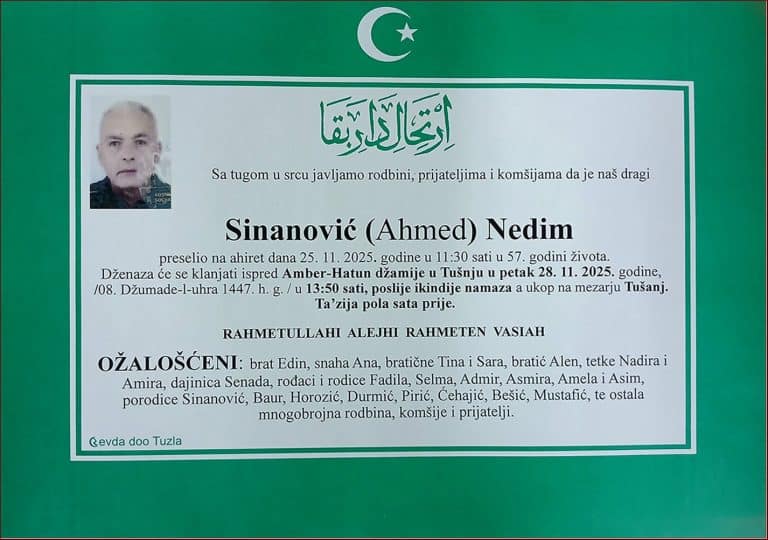 اِرْتِحَالِ دَارِ بَقَا
Sa tugom u srcu javljamo rodbini, prijateljima i komšijama da je naš dragi
Sinanović (Ahmed) Nedim
preselio na ahiret dana 25. 11. 2025. godine u 11:30 sati u 57. godini života.
Dženaza će se klanjati ispred Amber-Hatun džamije u Tušnju u petak 28. 11. 2025. godine,
/08. Džumade-l-uhra 1447. h. g. / u 13:50 sati, poslije ikindije namaza a ukop na mezarju Tušanj.
Ta'zija pola sata prije.
RAHMETULLAHI ALEJHI RAHMETEN VASIAH
OŽALOŠĆENI: brat Edin, snaha Ana, bratične Tina i Sara, bratić Alen, tetke Nadira i
Amira, dajinica Senada, rođaci i rodice Fadila, Selma, Admir, Asmira, Amela i Asim,
porodice Sinanović, Baur, Horozić, Durmić, Pirić, Ćehajić, Bešić, Mustafić, te ostala
mnogobrojna rodbina, komšije i prijatelji.
evda doo Tuzla